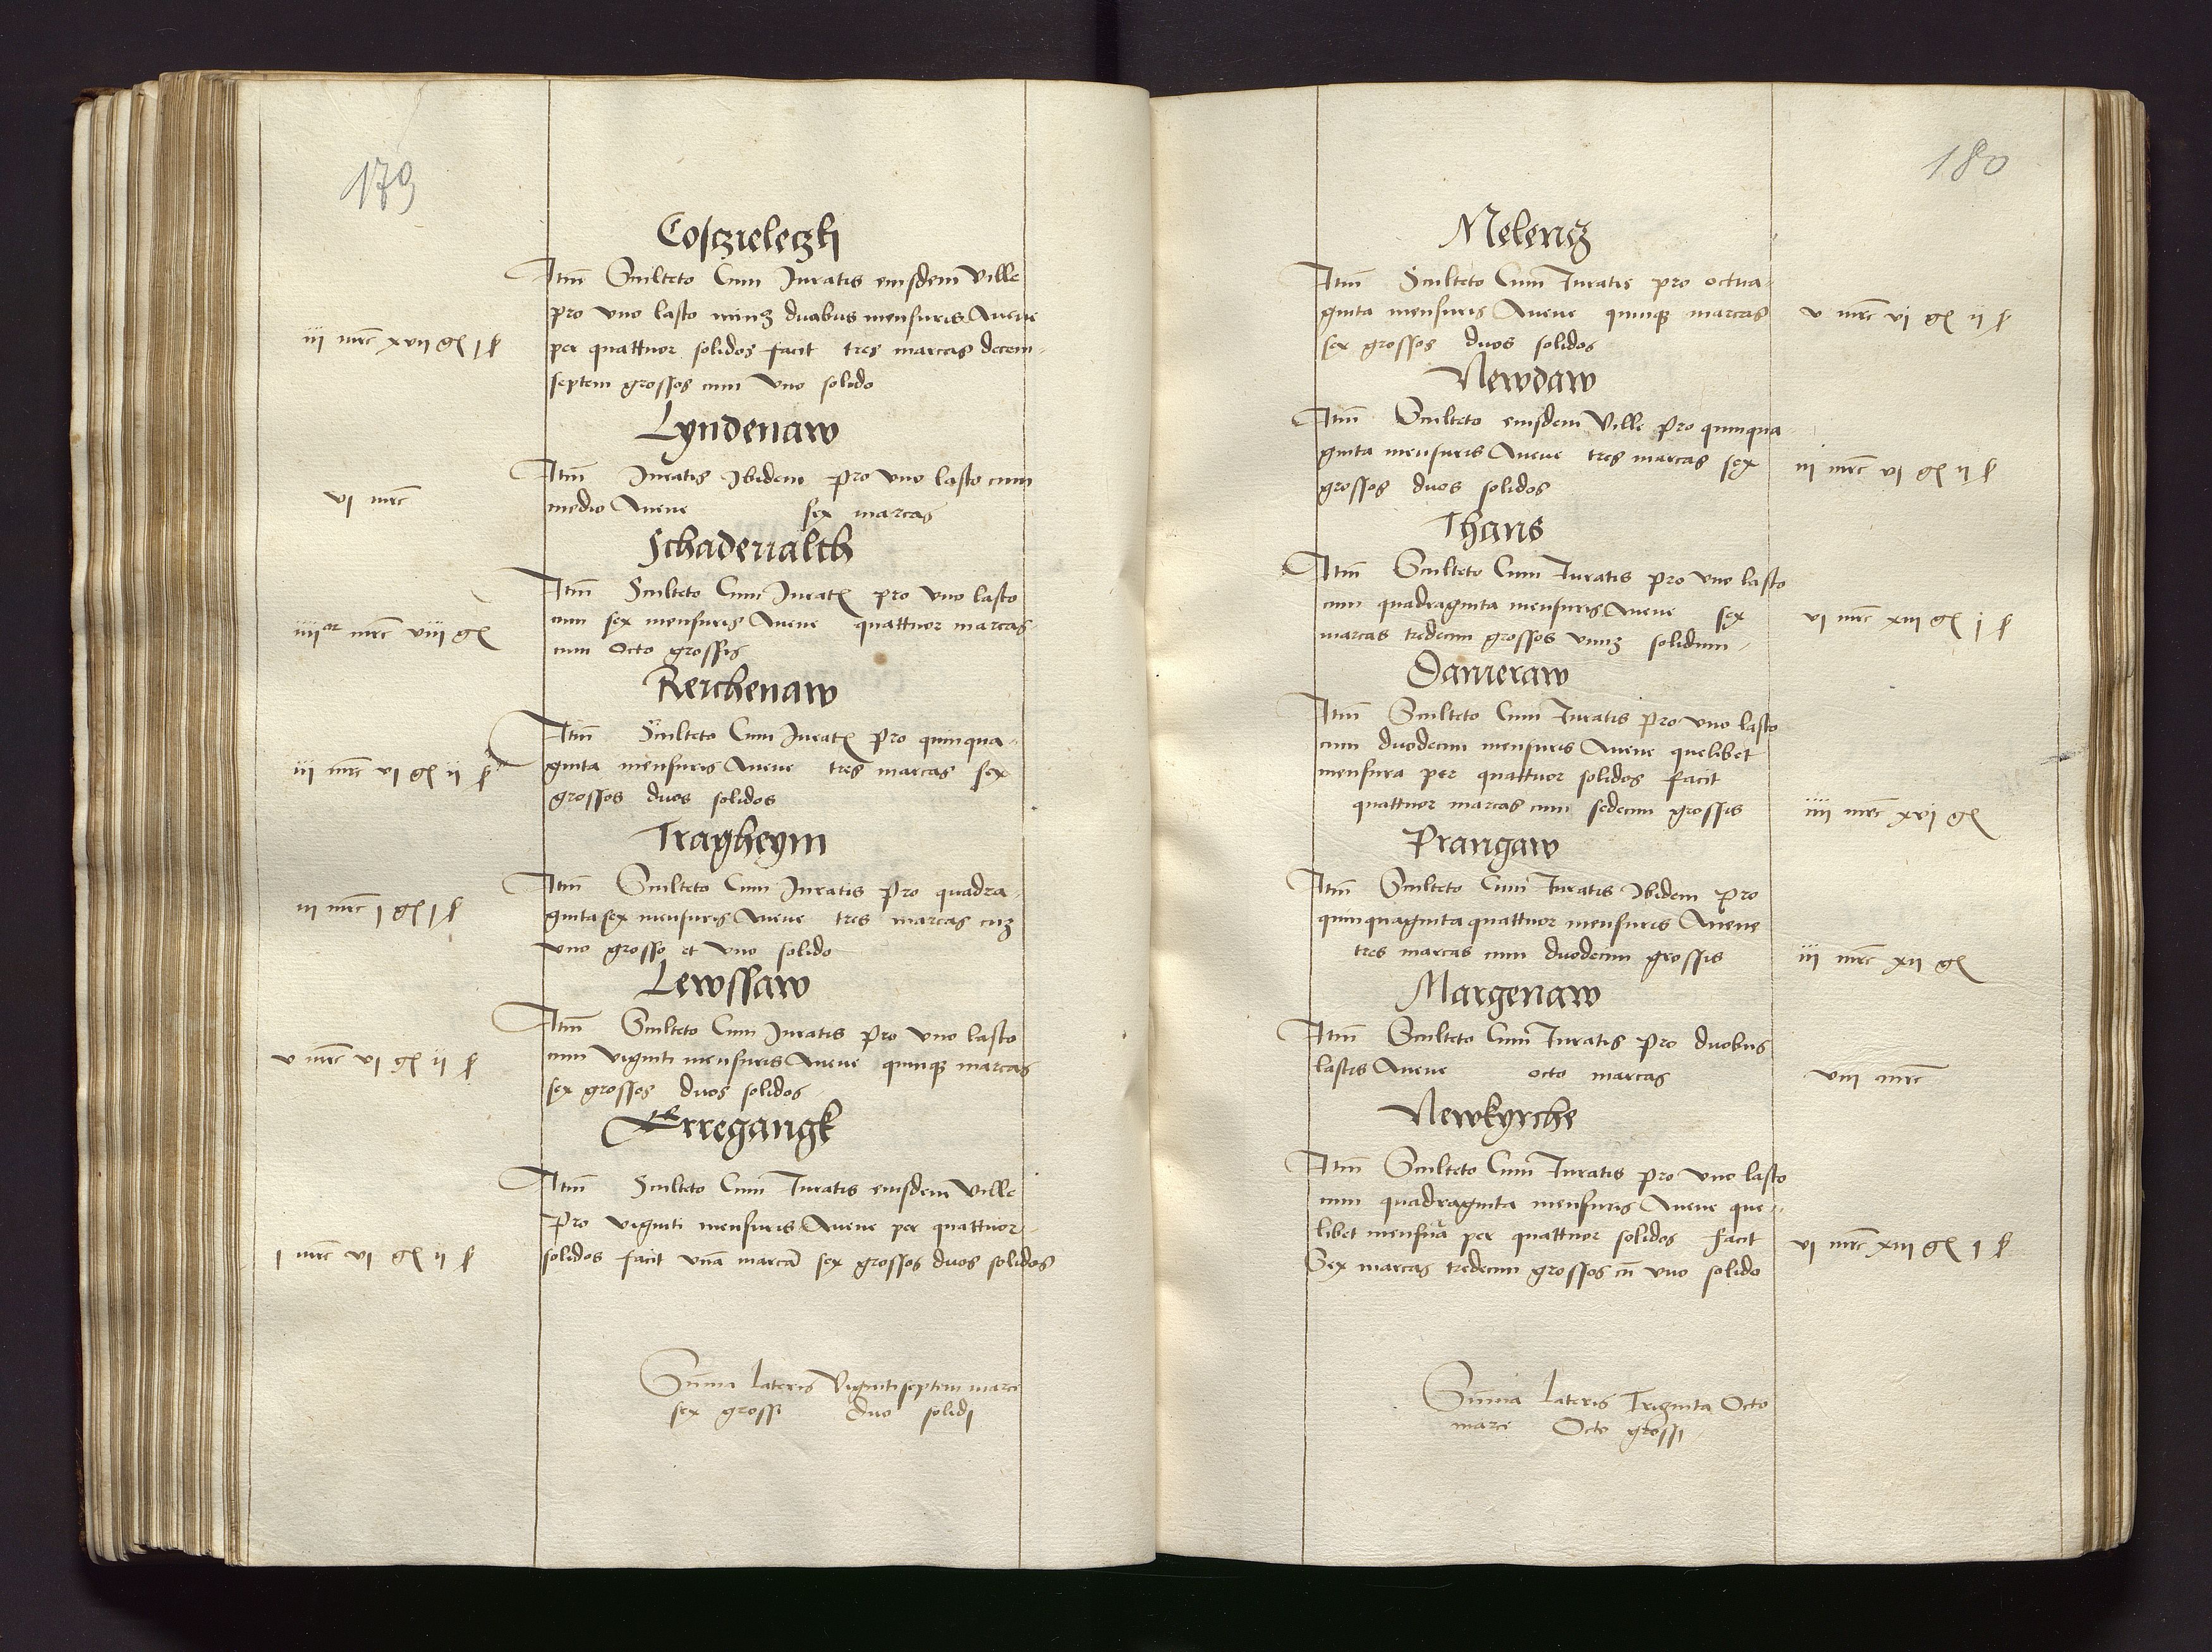 179
Cosczieleczki
Itm̄ Sculteto Cum Iuratis eiusdem Ville
pro vno lasto minꝫ duabus mensuris Auene
iii mrc̄ xvii gꝭ j ß
per quattuor solidos facit tres marcas decem-
septem grossos cum vno solido
Lyndenaw
Itm̄ Iuratis Ibidem pro vno lasto cum
vi mrc̄
medio Auene sex marcas
Schadewalth
Itm̄ Sculteto Cum Iuratꝭ pro vno lasto
iiiior mrc̄ viii gꝭ
cum sex mensuris Auene quattuor marcas
cum Octo grossis
Reichenaw
Itm̄ Sculteto Cum Iuratꝭ pro quinqua-
iii mrc̄ vi gꝭ ii ß
ginta mensuris Auene tres marcas sex
grossos duos solidos
Tragheym
Itm̄ Sculteto Cum Iuratis pro quadra-
iii mrc̄ j gꝭ j ß
gintasex mensuris Auene tres marcas cuꝫ
vno grosso et vno solido
Lewssaw
Itm̄ Sculteto Cum Iuratis pro vno lasto
v mrc̄ vi gꝭ ii ß
cum viginti mensuris Auene quinqꝫ marcas
sex grossos duos solidos
Irregangk
Itm̄ Sculteto Cum Iuratis eiusdem Ville
Pro viginti mensuris Auene per quattuor
i mrc̄ vi gꝭ ii ß
solidos facit vnā marcā sex grossos duos solidos
Sūma lateris Vigintiseptem marce
sex grossi duo solidi
180
Melencz
Itm̄ Sculteto Cum Iuratis pro octua-
ginta mensuris Auene quinqꝫ marcas
v mrc̄ vi gꝭ ii ß
sex grossos duos solidos
Newdaw
Itm̄ Sculteto eiusdem Ville pro quinqua
ginta mensuris Auene tres marcas sex
iii mrc̄ vi gꝭ ii ß
grossos duos solidos
Thans
Itm̄ Sculteto Cum Iuratis pro vno lasto
cum quadraginta mensuris Auene sex
vi mrc̄ xiii gꝭ j ß
marcas tredecim grossos vnuꝫ solidum
Dameraw
Itm̄ Sculteto Cum Iuratis pro vno lasto
cum duodecim mensuris Auene quelibet
mensura per quattuor solidos facit
quattuor marcas cum sedecim grossis
iiii mrc̄ xvi gꝭ
Prangaw
Itm̄ Sculteto Cum Iuratis Ibidem pro
quinquaginta quattuor mensuris Auene
tres marcas cum duodecim grossis
iii mrc̄ xii gꝭ
Margenaw
Itm̄ Sculteto Cum Iuratis pro duobus
lastis Auene octo marcas
viii mrc̄
Newkyrche
Itm̄ Sculteto Cum Iuratis pro vno lasto
cum quadraginta mensuris Auene que-
libet mensura per quattuor solidos facit
vi mrc̄ xiii gꝭ j ß
Sex marcas tredecim grossos cū vno solido
Sūma lateris Triginta Octo
marce Octo grossi